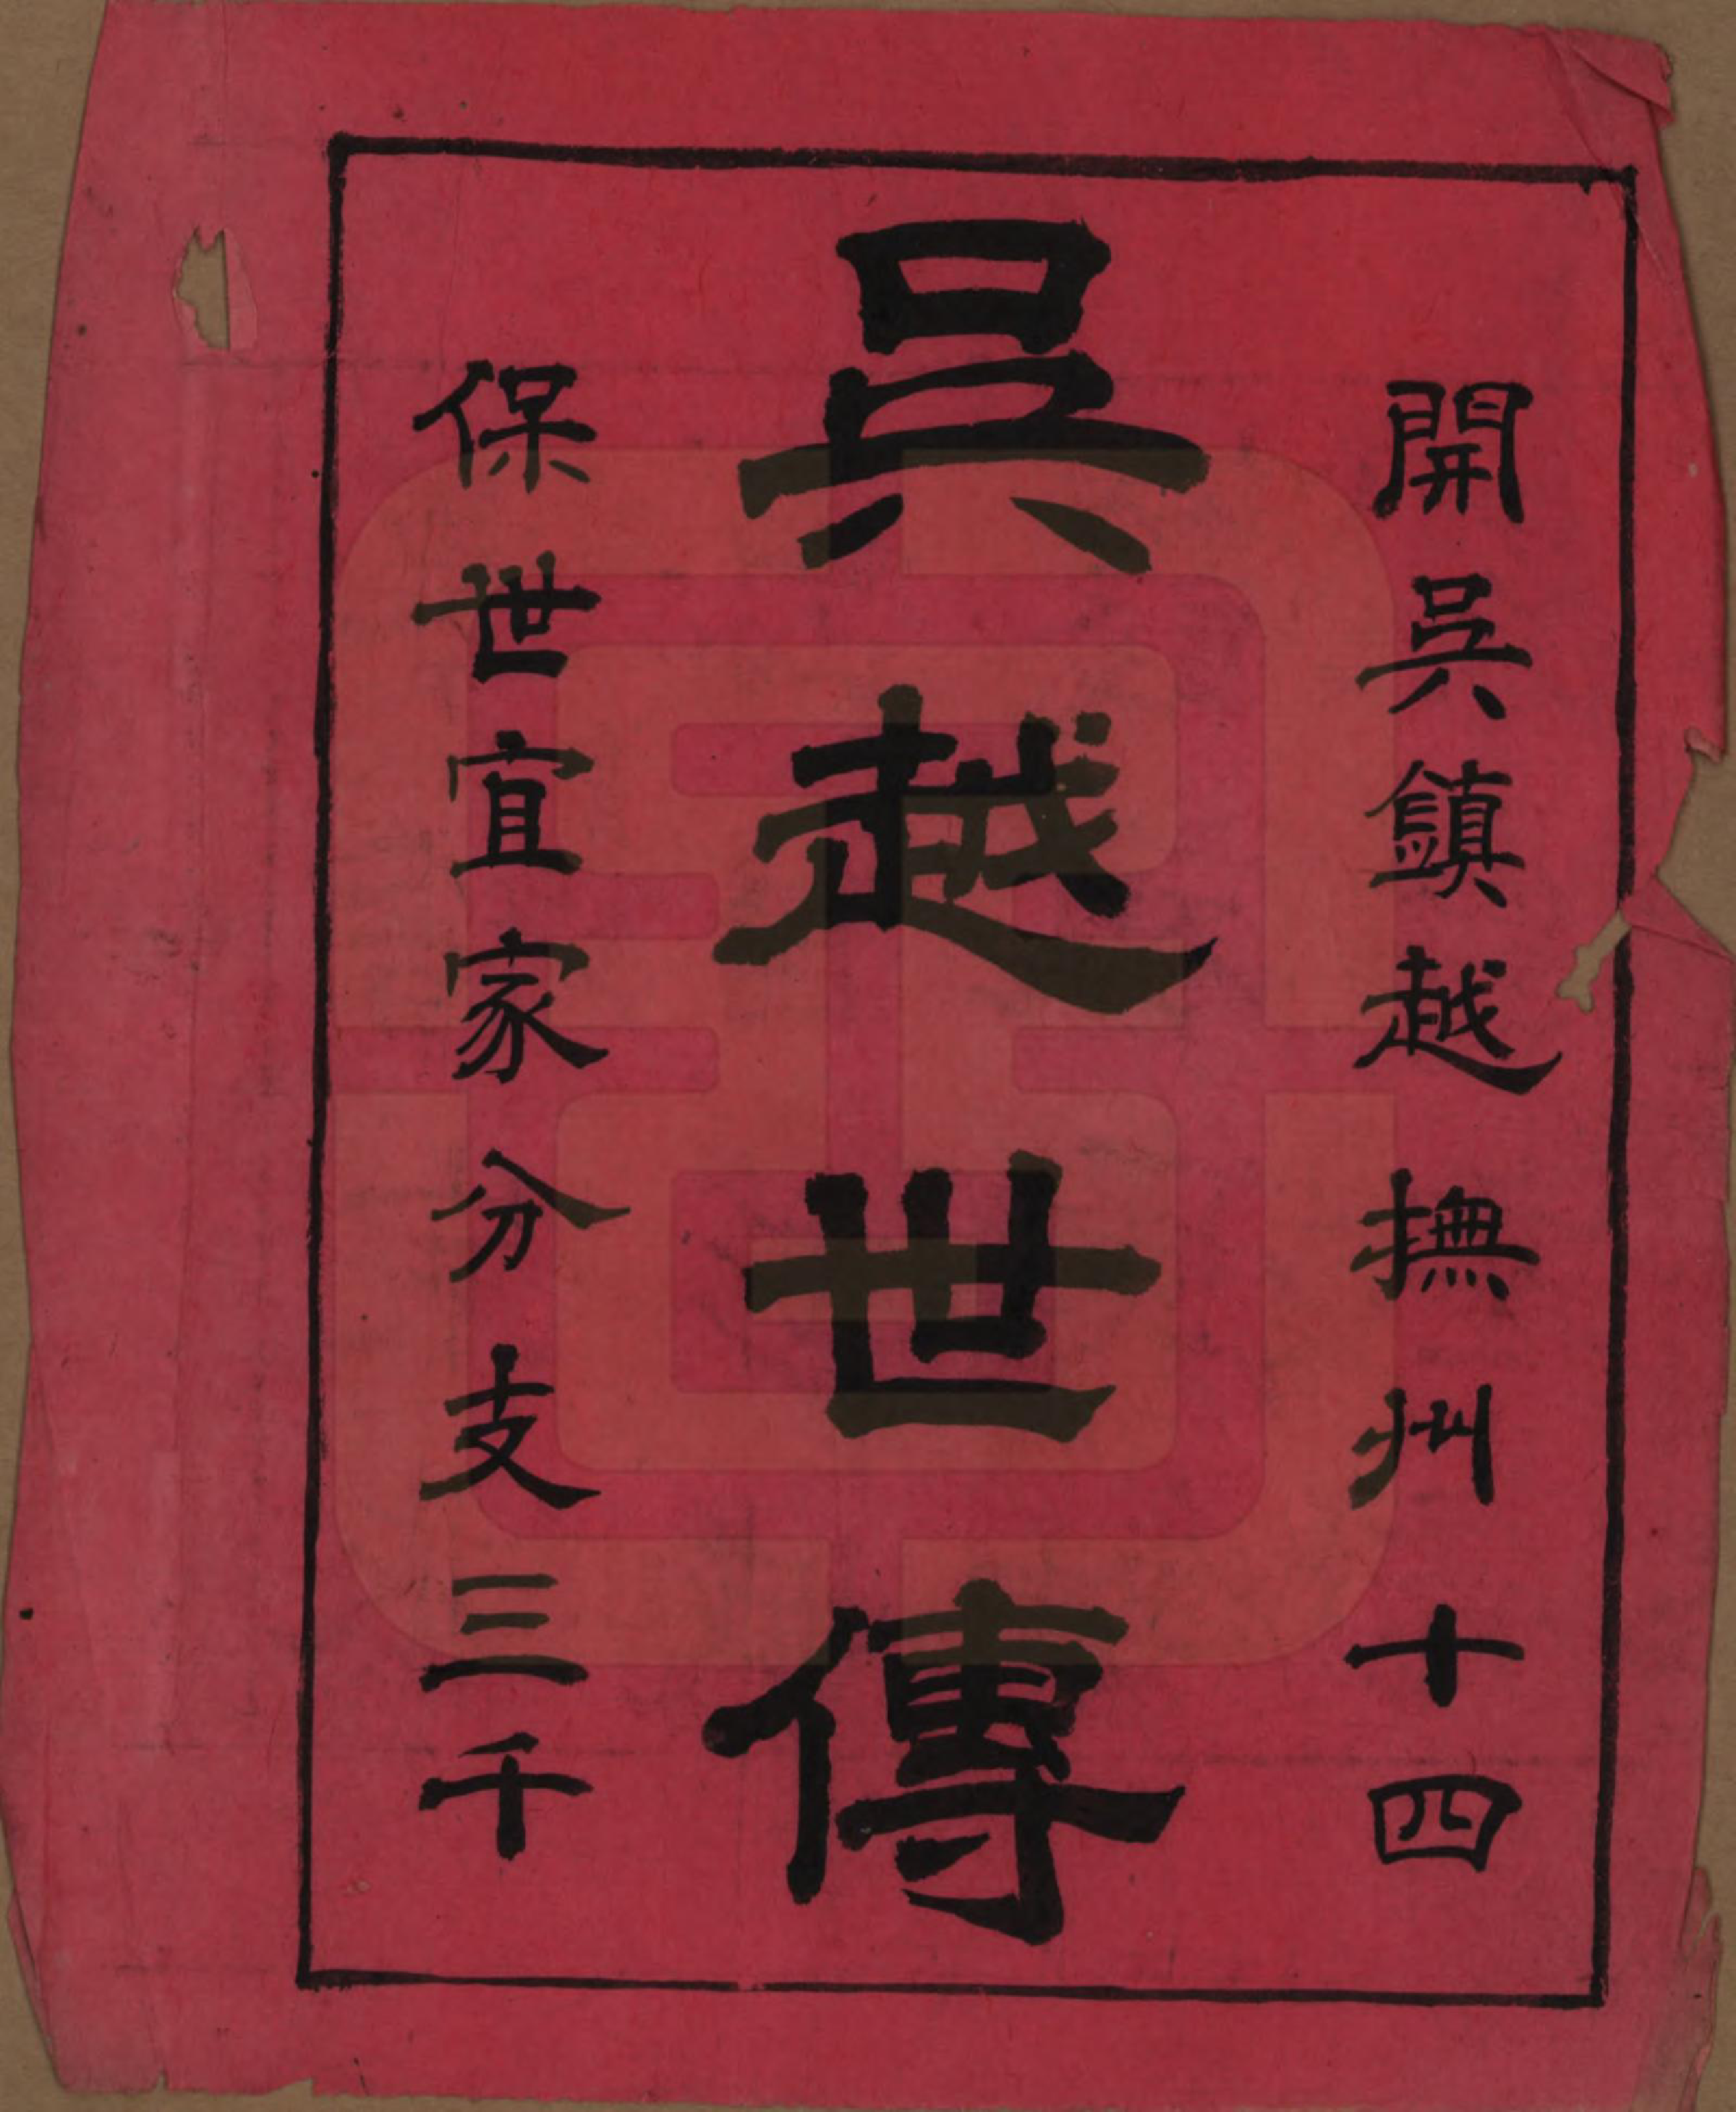 開吳鎮越撫州十四
吳越世傳
保世宜家分支三千